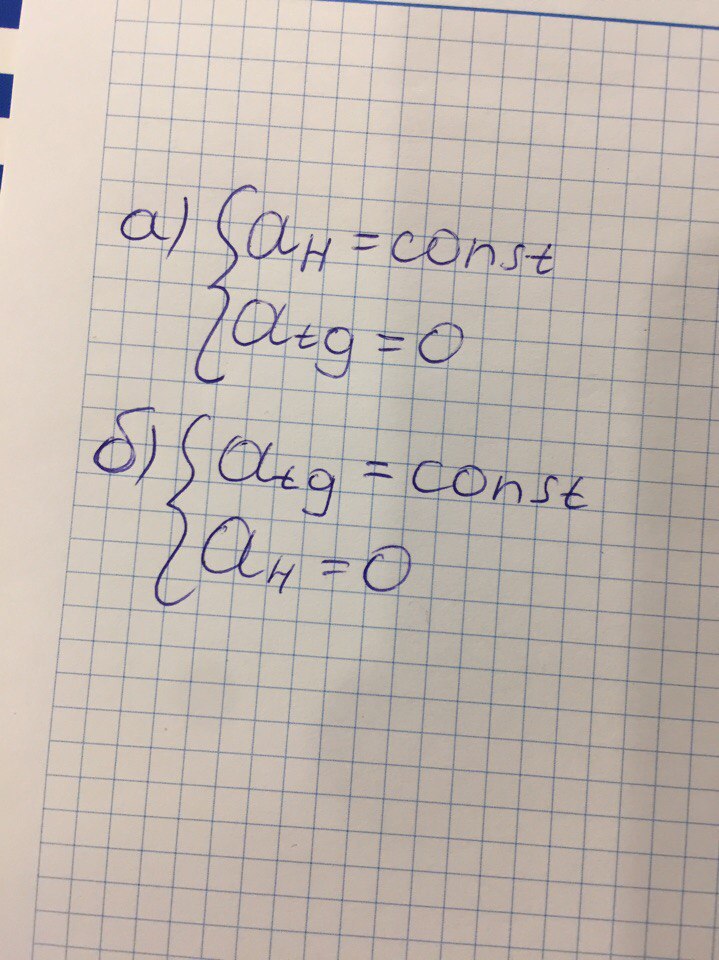 а) { aн = const
atg = 0
б) { atg = const
aн = 0